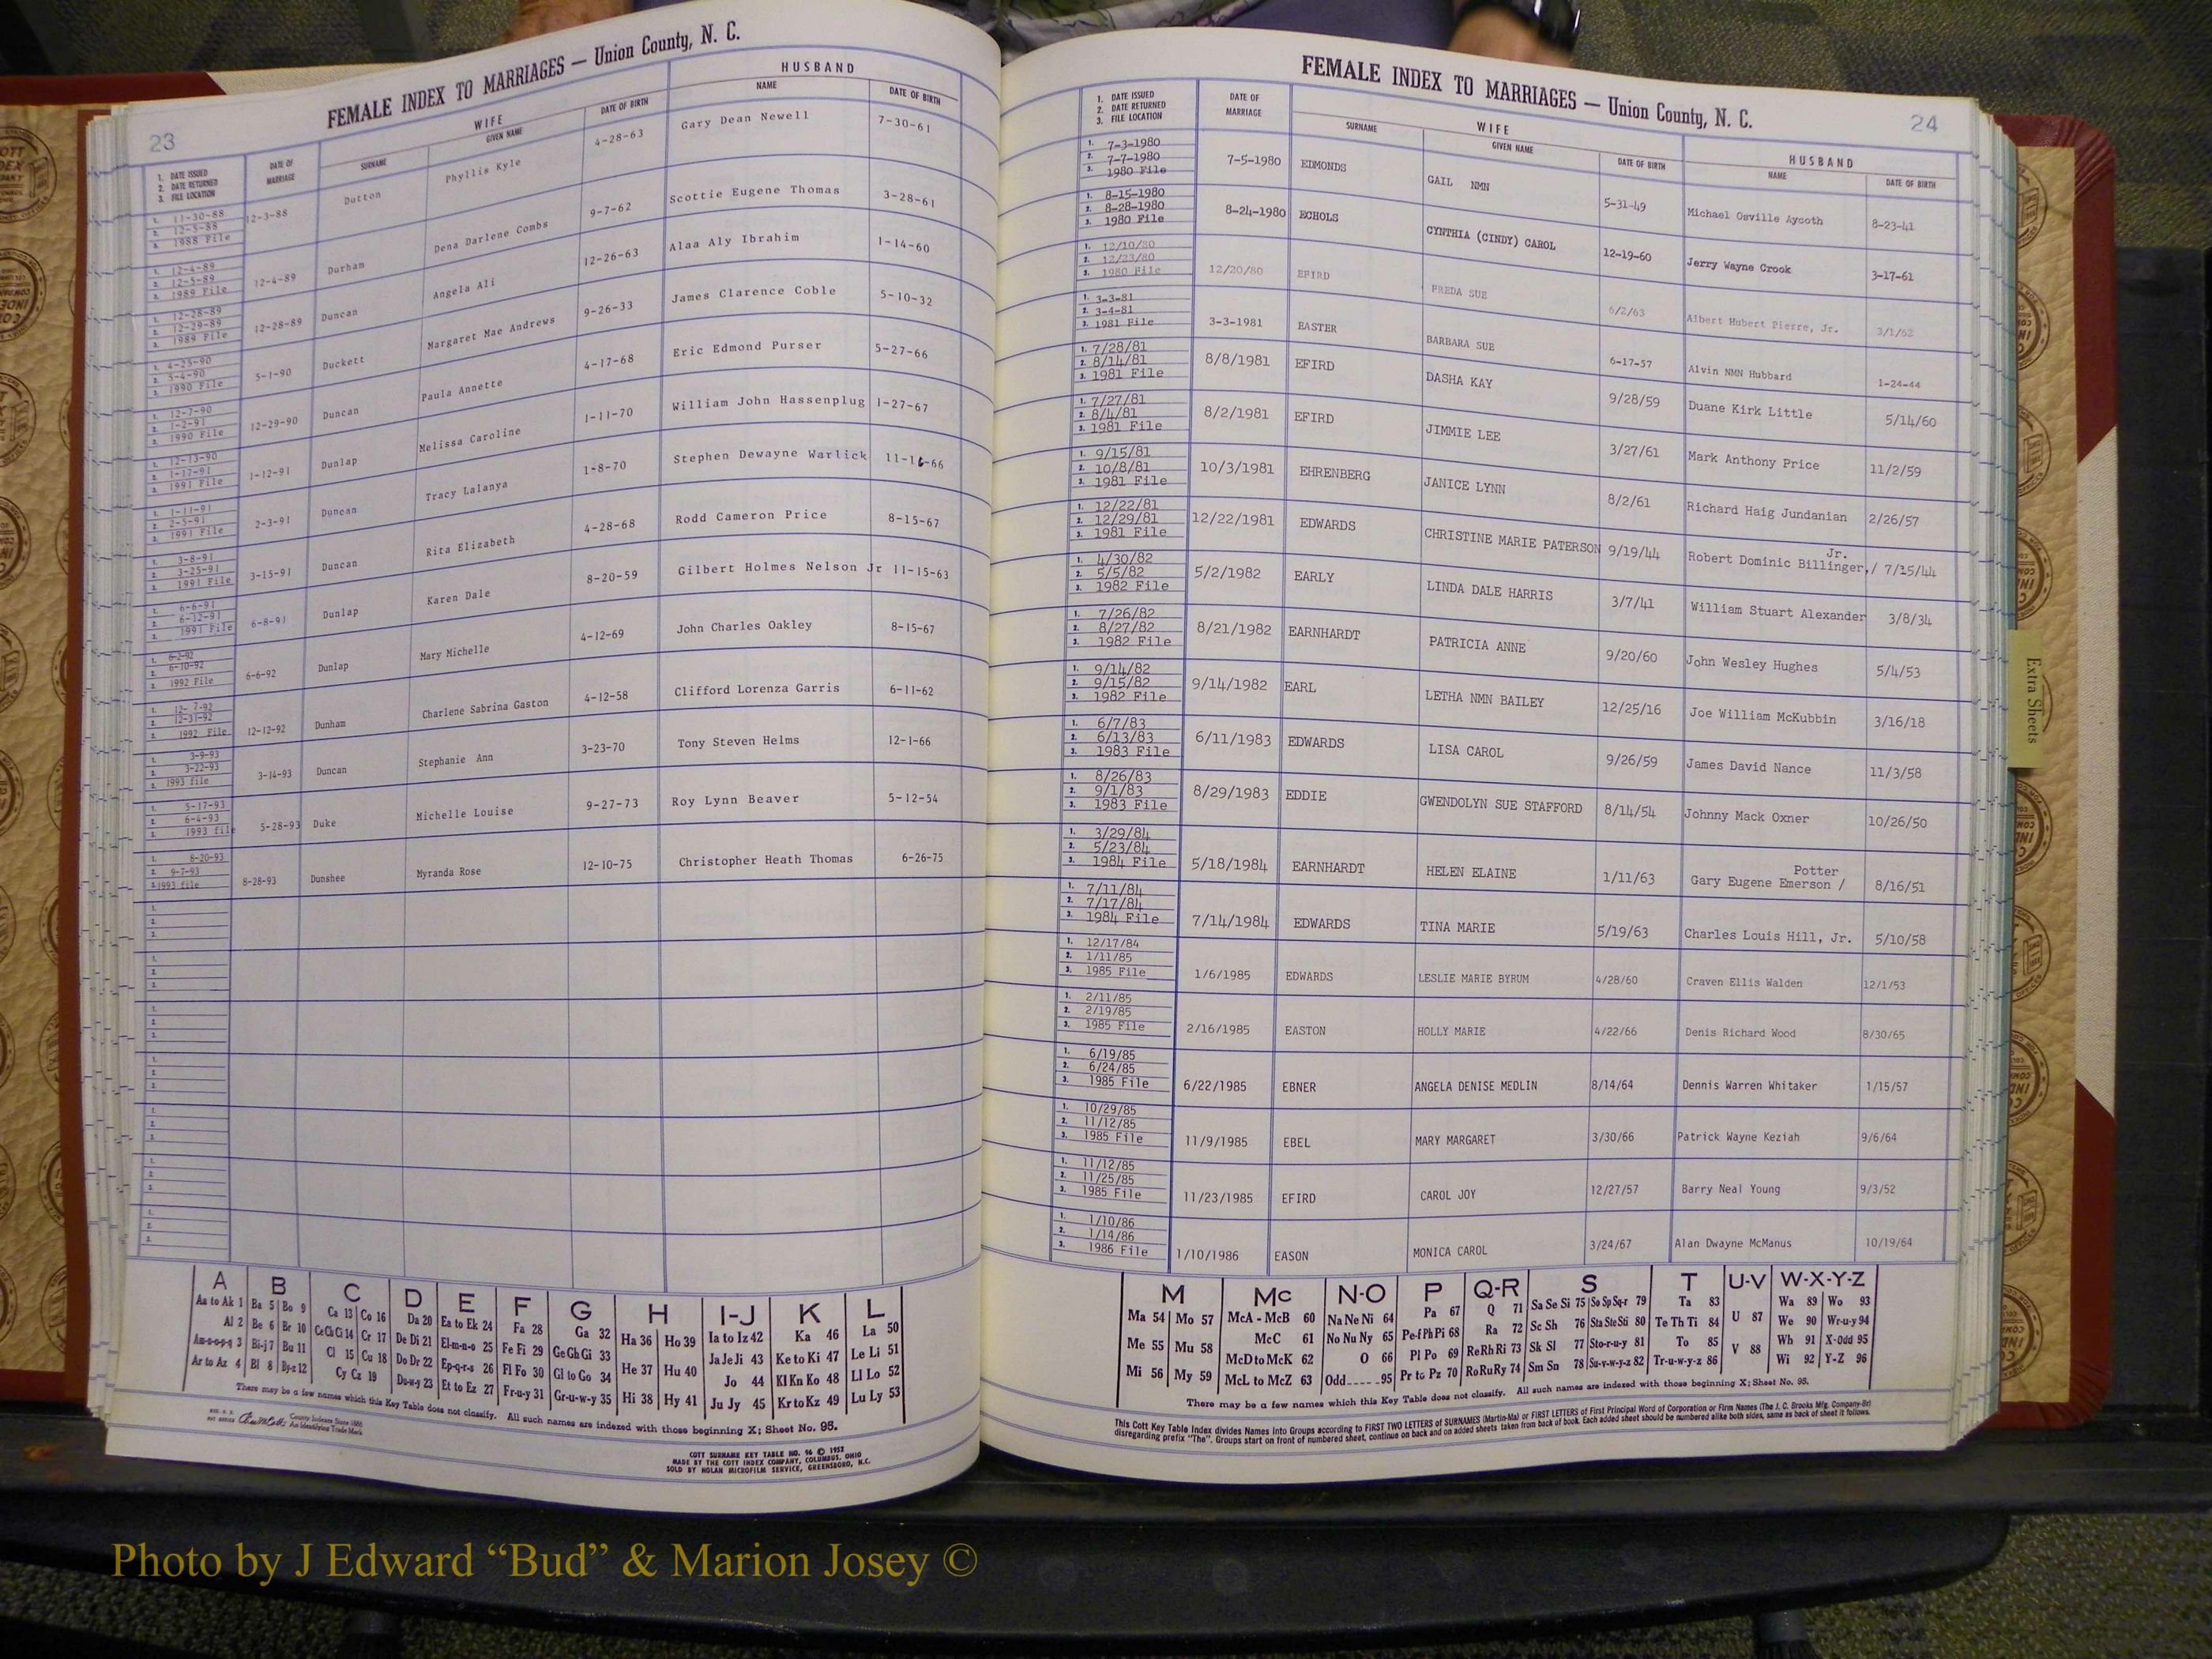 23
FEMALE INDEX TO MARRIAGES — Union County, N. C.
1. DATE ISSUED
2. DATE RETURNED
3. FILE LOCATION
DATE OF MARRIAGE
WIFE
SURNAME GIVEN NAME DATE OF BIRTH
HUSBAND
NAME DATE OF BIRTH
1. 11-30-88
2. 12-5-88
3. 1988 File
12-3-88 Dutton Phyllis Kyle 4-28-63 Gary Dean Newell 7-30-61
1. 12-4-89
2. 12-5-89
3. 1989 File
12-4-89 Durham Dena Darlene Combs 9-7-62 Scottie Eugene Thomas 3-28-61
1. 12-28-89
2. 12-29-89
3. 1989 File
12-28-89 Duncan Angela Ali 12-26-63 Alaa Aly Ibrahim 1-14-60
1. 4-25-90
2. 5-4-90
3. 1990 File
5-1-90 Duckett Margaret Mae Andrews 9-26-33 James Clarence Coble 5-10-32
1. 12-7-90
2. 1-2-91
3. 1990 File
12-29-90 Duncan Paula Annette 4-17-68 Eric Edmond Purser 5-27-66
1. 12-13-90
2. 1-17-91
3. 1991 File
1-12-91 Dunlap Melissa Caroline 1-11-70 William John Hassenplug 1-27-67
1. 1-11-91
2. 2-5-91
3. 1991 File
2-3-91 Duncan Tracy Lalanya 1-8-70 Stephen Dewayne Warlick 11-16-66
1. 3-8-91
2. 3-25-91
3. 1991 File
3-15-91 Duncan Rita Elizabeth 4-28-68 Rodd Cameron Price 8-15-67
1. 6-6-91
2. 6-12-91
3. 1991 File
6-8-91 Dunlap Karen Dale 8-20-59 Gilbert Holmes Nelson Jr 11-15-63
1. 6-2-92
2. 6-10-92
3. 1992 File
6-6-92 Dunlap Mary Michelle 4-12-69 John Charles Oakley 8-15-67
1. 12-7-92
2. 12-31-92
3. 1992 File
12-12-92 Dunham Charlene Sabrina Gaston 4-12-58 Clifford Lorenza Garris 6-11-62
1. 3-9-93
2. 3-22-93
3. 1993 file
3-14-93 Duncan Stephanie Ann 3-23-70 Tony Steven Helms 12-1-66
1. 5-17-93
2. 6-4-93
3. 1993 file
5-28-93 Duke Michelle Louise 9-27-73 Roy Lynn Beaver 5-12-54
1. 8-20-93
2. 9-7-93
3. 1993 file
8-28-93 Dunshee Myranda Rose 12-10-75 Christopher Heath Thomas 6-26-75
A B C D E F G H I-J K L
Aa to Ak 1 Ba 5 Bo 9 Ca 13 Co 16 Da 20 Ea to Ek 24 Fa 28 Ga 32 Ha 36 Ho 39 Ia to Iz 42 Ka 46 La 50
Al 2 Be 6 Br 10 Ce Ch Ci 14 Cr 17 De Di 21 El-m-n-o 25 Fe Fi 29 Ge Gh Gi 33 He 37 Hu 40 Ja Je Ji 43 Ke to Ki 47 Le Li 51
Am-n-o-p-q 3 Bi-j 7 Bu 11 Cl 15 Cu 18 Do Dr 22 Ep-q-r-s 26 Fl Fo 30 Gl to Go 34 Hi 38 Hy 41 Jo 44 Kl Kn Ko 48 Ll Lo 52
Ar to Az 4 Bl 8 By-z 12 Cy Cz 19 Du-w-y 23 Et to Ez 27 Fr-u-y 31 Gr-u-w-y 35 Ju Jy 45 Kr to Kz 49 Lu Ly 53
There may be a few names which this Key Table does not classify. All such names are indexed with those beginning X; Sheet No. 95.
County Indexes Since 1888
An Identifying Trade Mark
COTT SURNAME KEY TABLE NO. 96 © 1952
MADE BY THE COTT INDEX COMPANY, COLUMBUS, OHIO
SOLD BY NOLAN MICROFILM SERVICE, GREENSBORO, N.C.
FEMALE INDEX TO MARRIAGES — Union County, N. C.
24
1. DATE ISSUED
2. DATE RETURNED
3. FILE LOCATION
DATE OF MARRIAGE
WIFE
SURNAME GIVEN NAME DATE OF BIRTH
HUSBAND
NAME DATE OF BIRTH
1. 7-3-1980
2. 7-7-1980
3. 1980 File
7-5-1980 EDMONDS GAIL NMN 5-31-49 Michael Osville Aycoth 8-23-41
1. 8-15-1980
2. 8-28-1980
3. 1980 File
8-24-1980 ECHOLS CYNTHIA (CINDY) CAROL 12-19-60 Jerry Wayne Crook 3-17-61
1. 12/10/80
2. 12/23/80
3. 1980 File
12/20/80 EFIRD FREDA SUE 6/2/63 Albert Hubert Pierre, Jr. 3/1/62
1. 3-3-81
2. 3-4-81
3. 1981 File
3-3-1981 EASTER BARBARA SUE 6-17-57 Alvin NMN Hubbard 1-24-44
1. 7/28/81
2. 8/14/81
3. 1981 File
8/8/1981 EFIRD DASHA KAY 9/28/59 Duane Kirk Little 5/14/60
1. 7/27/81
2. 8/4/81
3. 1981 File
8/2/1981 EFIRD JIMMIE LEE 3/27/61 Mark Anthony Price 11/2/59
1. 9/15/81
2. 10/8/81
3. 1981 File
10/3/1981 EHRENBERG JANICE LYNN 8/2/61 Richard Haig Jundanian 2/26/57
1. 12/22/81
2. 12/29/81
3. 1981 File
12/22/1981 EDWARDS CHRISTINE MARIE PATERSON 9/19/44 Robert Dominic Billinger,/ Jr. 7/15/44
1. 4/30/82
2. 5/5/82
3. 1982 File
5/2/1982 EARLY LINDA DALE HARRIS 3/7/41 William Stuart Alexander 3/8/34
1. 7/26/82
2. 8/27/82
3. 1982 File
8/21/1982 EARNHARDT PATRICIA ANNE 9/20/60 John Wesley Hughes 5/4/53
1. 9/14/82
2. 9/15/82
3. 1982 File
9/14/1982 EARL LETHA NMN BAILEY 12/25/16 Joe William McKubbin 3/16/18
1. 6/7/83
2. 6/13/83
3. 1983 File
6/11/1983 EDWARDS LISA CAROL 9/26/59 James David Nance 11/3/58
1. 8/26/83
2. 9/1/83
3. 1983 File
8/29/1983 EDDIE GWENDOLYN SUE STAFFORD 8/14/54 Johnny Mack Oxner 10/26/50
1. 3/29/84
2. 5/23/84
3. 1984 File
5/18/1984 EARNHARDT HELEN ELAINE 1/11/63 Gary Eugene Emerson / Potter 8/16/51
1. 7/11/84
2. 7/17/84
3. 1984 File
7/14/1984 EDWARDS TINA MARIE 5/19/63 Charles Louis Hill, Jr. 5/10/58
1. 12/17/84
2. 1/11/85
3. 1985 File
1/6/1985 EDWARDS LESLIE MARIE BYRUM 4/28/60 Craven Ellis Walden 12/1/53
1. 2/11/85
2. 2/19/85
3. 1985 File
2/16/1985 EASTON HOLLY MARIE 4/22/66 Denis Richard Wood 8/30/65
1. 6/19/85
2. 6/24/85
3. 1985 File
6/22/1985 EBNER ANGELA DENISE MEDLIN 8/14/64 Dennis Warren Whitaker 1/15/57
1. 10/29/85
2. 11/12/85
3. 1985 File
11/9/1985 EBEL MARY MARGARET 3/30/66 Patrick Wayne Keziah 9/6/64
1. 11/12/85
2. 11/25/85
3. 1985 File
11/23/1985 EFIRD CAROL JOY 12/27/57 Barry Neal Young 9/3/52
1. 1/10/86
2. 1/14/86
3. 1986 File
1/10/1986 EASON MONICA CAROL 3/24/67 Alan Dwayne McManus 10/19/64
M Mc N-O P Q-R S T U-V W-X-Y-Z
Ma 54 Mo 57 McA - McB 60 Na Ne Ni 64 Pa 67 Q 71 Sa Se Si 75 So Sp Sq-r 79 Ta 83 U 87 Wa 89 Wo 93
Me 55 Mu 58 McC 61 No Nu Ny 65 Pe-f Ph Pi 68 Ra 72 Sc Sh 76 Sta Ste Sti 80 Te Th Ti 84 V 88 We 90 Wr-u-y 94
Mi 56 My 59 McD to McK 62 O 66 Pl Po 69 Re Rh Ri 73 Sk Sl 77 Sto-r-u-y 81 To 85 Wh 91 X-Odd 95
McL to McZ 63 Odd 95 Pr to Pz 70 Ro Ru Ry 74 Sm Sn 78 Su-v-w-y-z 82 Tr-u-w-y-z 86 Wi 92 Y-Z 96
There may be a few names which this Key Table does not classify. All such names are indexed with those beginning X; Sheet No. 95.
This Cott Key Table Index divides Names into Groups according to FIRST TWO LETTERS of SURNAMES (Martin-Ma) or FIRST LETTERS of First Principal Word of Corporation or Firm Names (The J. C. Brooks Mfg. Company-Br)
disregarding prefix "The". Groups start on front of numbered sheet, continue on back and on added sheets taken from back of book. Each added sheet should be numbered alike both sides, same as back of sheet it follows.
Extra Sheets
Photo by J Edward “Bud” & Marion Josey ©